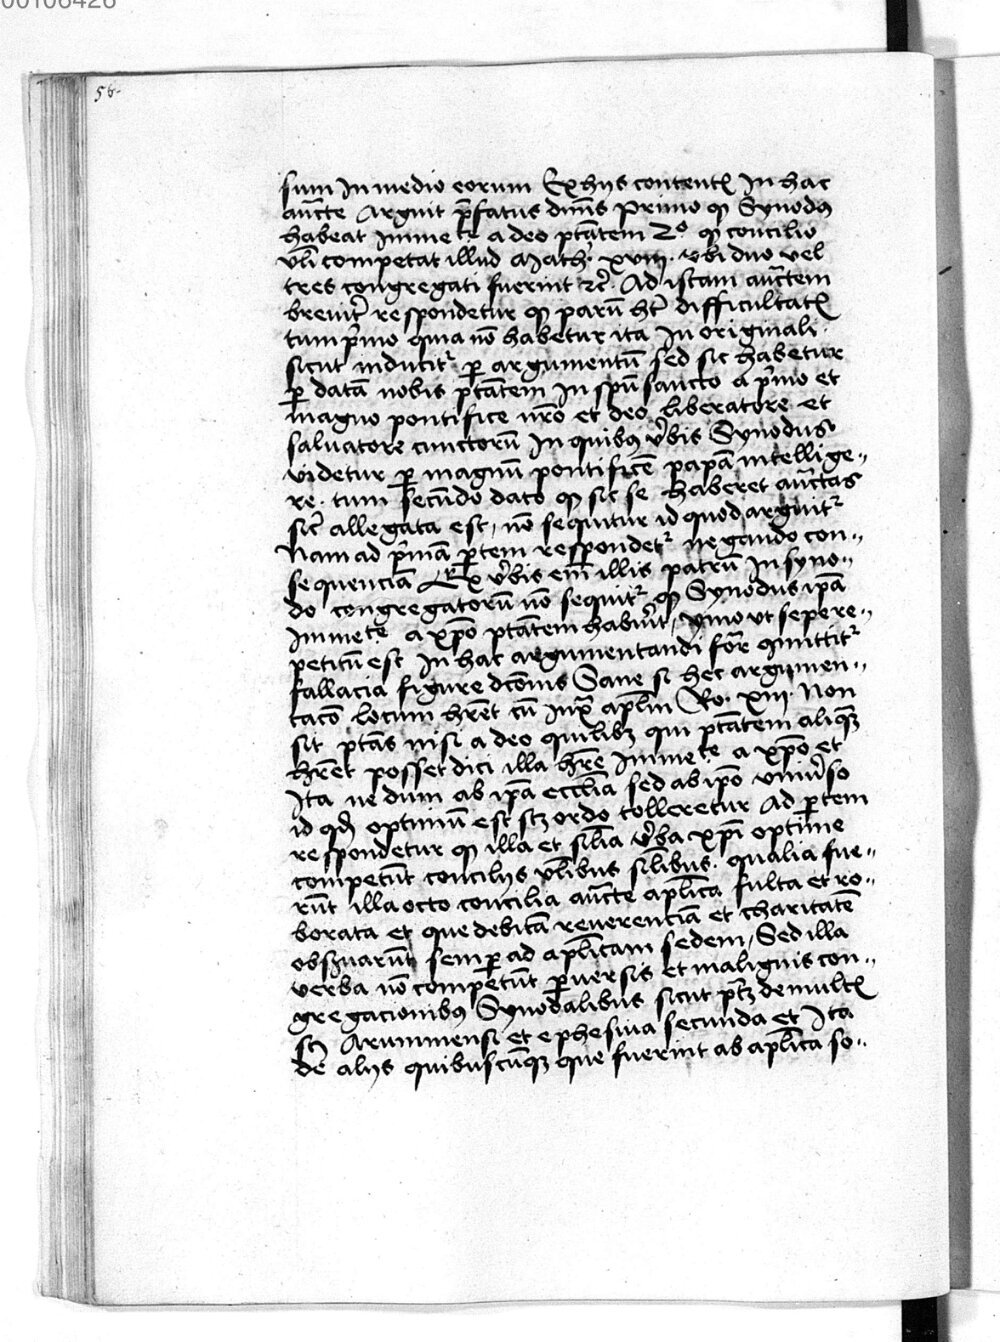 00106426
58.
sum In medio eorum Ex hijs contentꝭ In hac
auc̄te Arguit p̄fatus dn̄s Primo ꝙ Synodꝰ
habeat Imme te a deo ptātem 2º ꝙ concilio
vl̄i competat illud Math̄. xviij. vbi duo vel
tres congregati fuerint ꝛc̄. Ad istam auc̄tem
breuit̄ respondetur ꝙ parū ht̄ difficultatꝭ
tum p̄mo quia nō habetur ita In originali
sicut inducit᷑ ꝑ argumentū sed sic habetur
ꝑ datā nobis ptātem In spū sancto a p̄mo et
magno pontifice nr̄o et deo liberatore et
saluatore cunctorū In quibꝰ v̄bis Synodus
videtur ꝑ magnū pontificē papā intellige-
re. tum secūdo dato ꝙ sic se haberet auc̄tas
sic̄ allegata est, nō sequitur id quod arguit᷑
Nam ad p̄mā ꝑtem respondet᷑ negando con-
sequenciā Ex v̄bis em̄ illis patrū In syno-
do congregatorū nō sequit᷑ ꝙ Synodus ip̄a
Imme te a xp̄o ptātem habu̇it, ymo vt sepe re-
petitū est In hac argumentandi for̄ comittit᷑
fallacia figure dcōnis Sane si hec argumen-
tacō locum hr̄et cū iux̄ apl̄m Ro. xiij. Non
sit ptās nisi a deo quilibꝫ qui ptātem aliqꝫ
hr̄et posset dici illa hr̄e Imme te a xp̄o et
Ita ne dum ab ip̄a eccl̄ia sed ab ip̄o vniu̇so
id qd̄ optimū est scꝫ ordo tolleretur Ad ꝑtem
respondetur ꝙ illa et sil̄ia v̄ba xp̄i optime
competūt concilijs vl̄ibus sil̄ibus. qualia fue-
rūt illa octo concilia auc̄te apl̄ica fulta et ro-
borata et que debitā reuerenciā et charitatē
obs̄uarūt semꝑ ad apl̄icam sedem, Sed illa
verba nō competūt ꝑuersis et malignis con-
gregacionibꝰ Synodalibus sicut ptꝫ de multꝭ
sc̄ Arimmensi et ephesina secunda et Ita
de alijs quibuscūqꝫ que fuerint ab apl̄ica so-